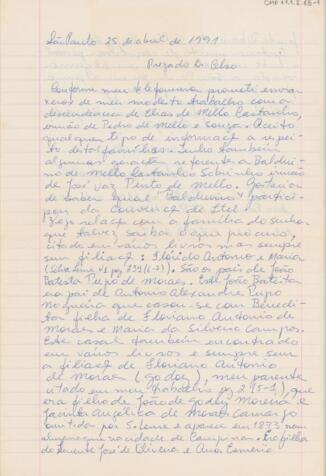 São Paulo 25 de abril de 1991
Prezado Dr. Celso
Conforme meu telefonema prometi enviar
xerox de meu modesto trabalho com a
descendencia de Elias de Mello Castanho,
irmão de Pedro de Mello e Souza. Aceito
qualquer tipo de informação a respeito
destas familias. Tenho tambem
algumas gerações referente a Baldui
no de Mello Castanho Sobrinho irmão
de José Vaz Pinto de Mello. Gostaria
de saber qual Balduino participou
da Convenção de Itu.
senhor
que talvez saiba. Daqui procuro,
citado em vários livros mas sempre
sem filiação: Florido Antonio e Maria
(Silva Leme v1 pg). São os pais de João
Batista de Moraes. Este João Batista
e o pai de Antonio Alexandre
Nogueira que casou-se com Benedi
ta filha de Floriano Antonio de
Moraes e Maria da Silveira Campos.
Este casal tambem encontrado
em vários livros e sempre sem
a filiação de Floriano Antonio
de Moraes (Godoi), meu parente
citado em meu trabalho, que
era filho de João de Godoy Moreira e
Jacinta Angelica de Moraes Camargo
omitida por S. Leme e aparece em 1873 num
almanaque na cidade de Campinas. Era filha
do Tenente José de Oliveira e Ana